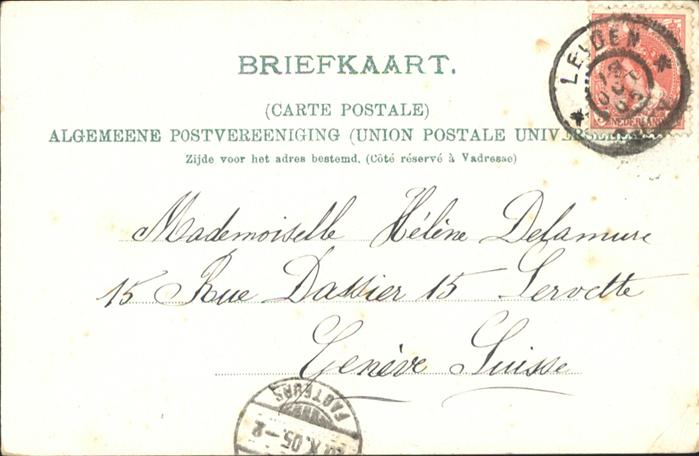 BRIEFKAART.
(CARTE POSTALE)
ALGEMEENE POSTVEREENIGING (UNION POSTALE UNIVERSELLE)
Zijde voor het adres bestemd. (Côté réservé à Vadresse)
LEIDEN
NEDERLAND
Mademoiselle Hélène Delamure
15 Rue Dassier 15 Servette
Genève Suisse
FACTEURS
X.05.-2